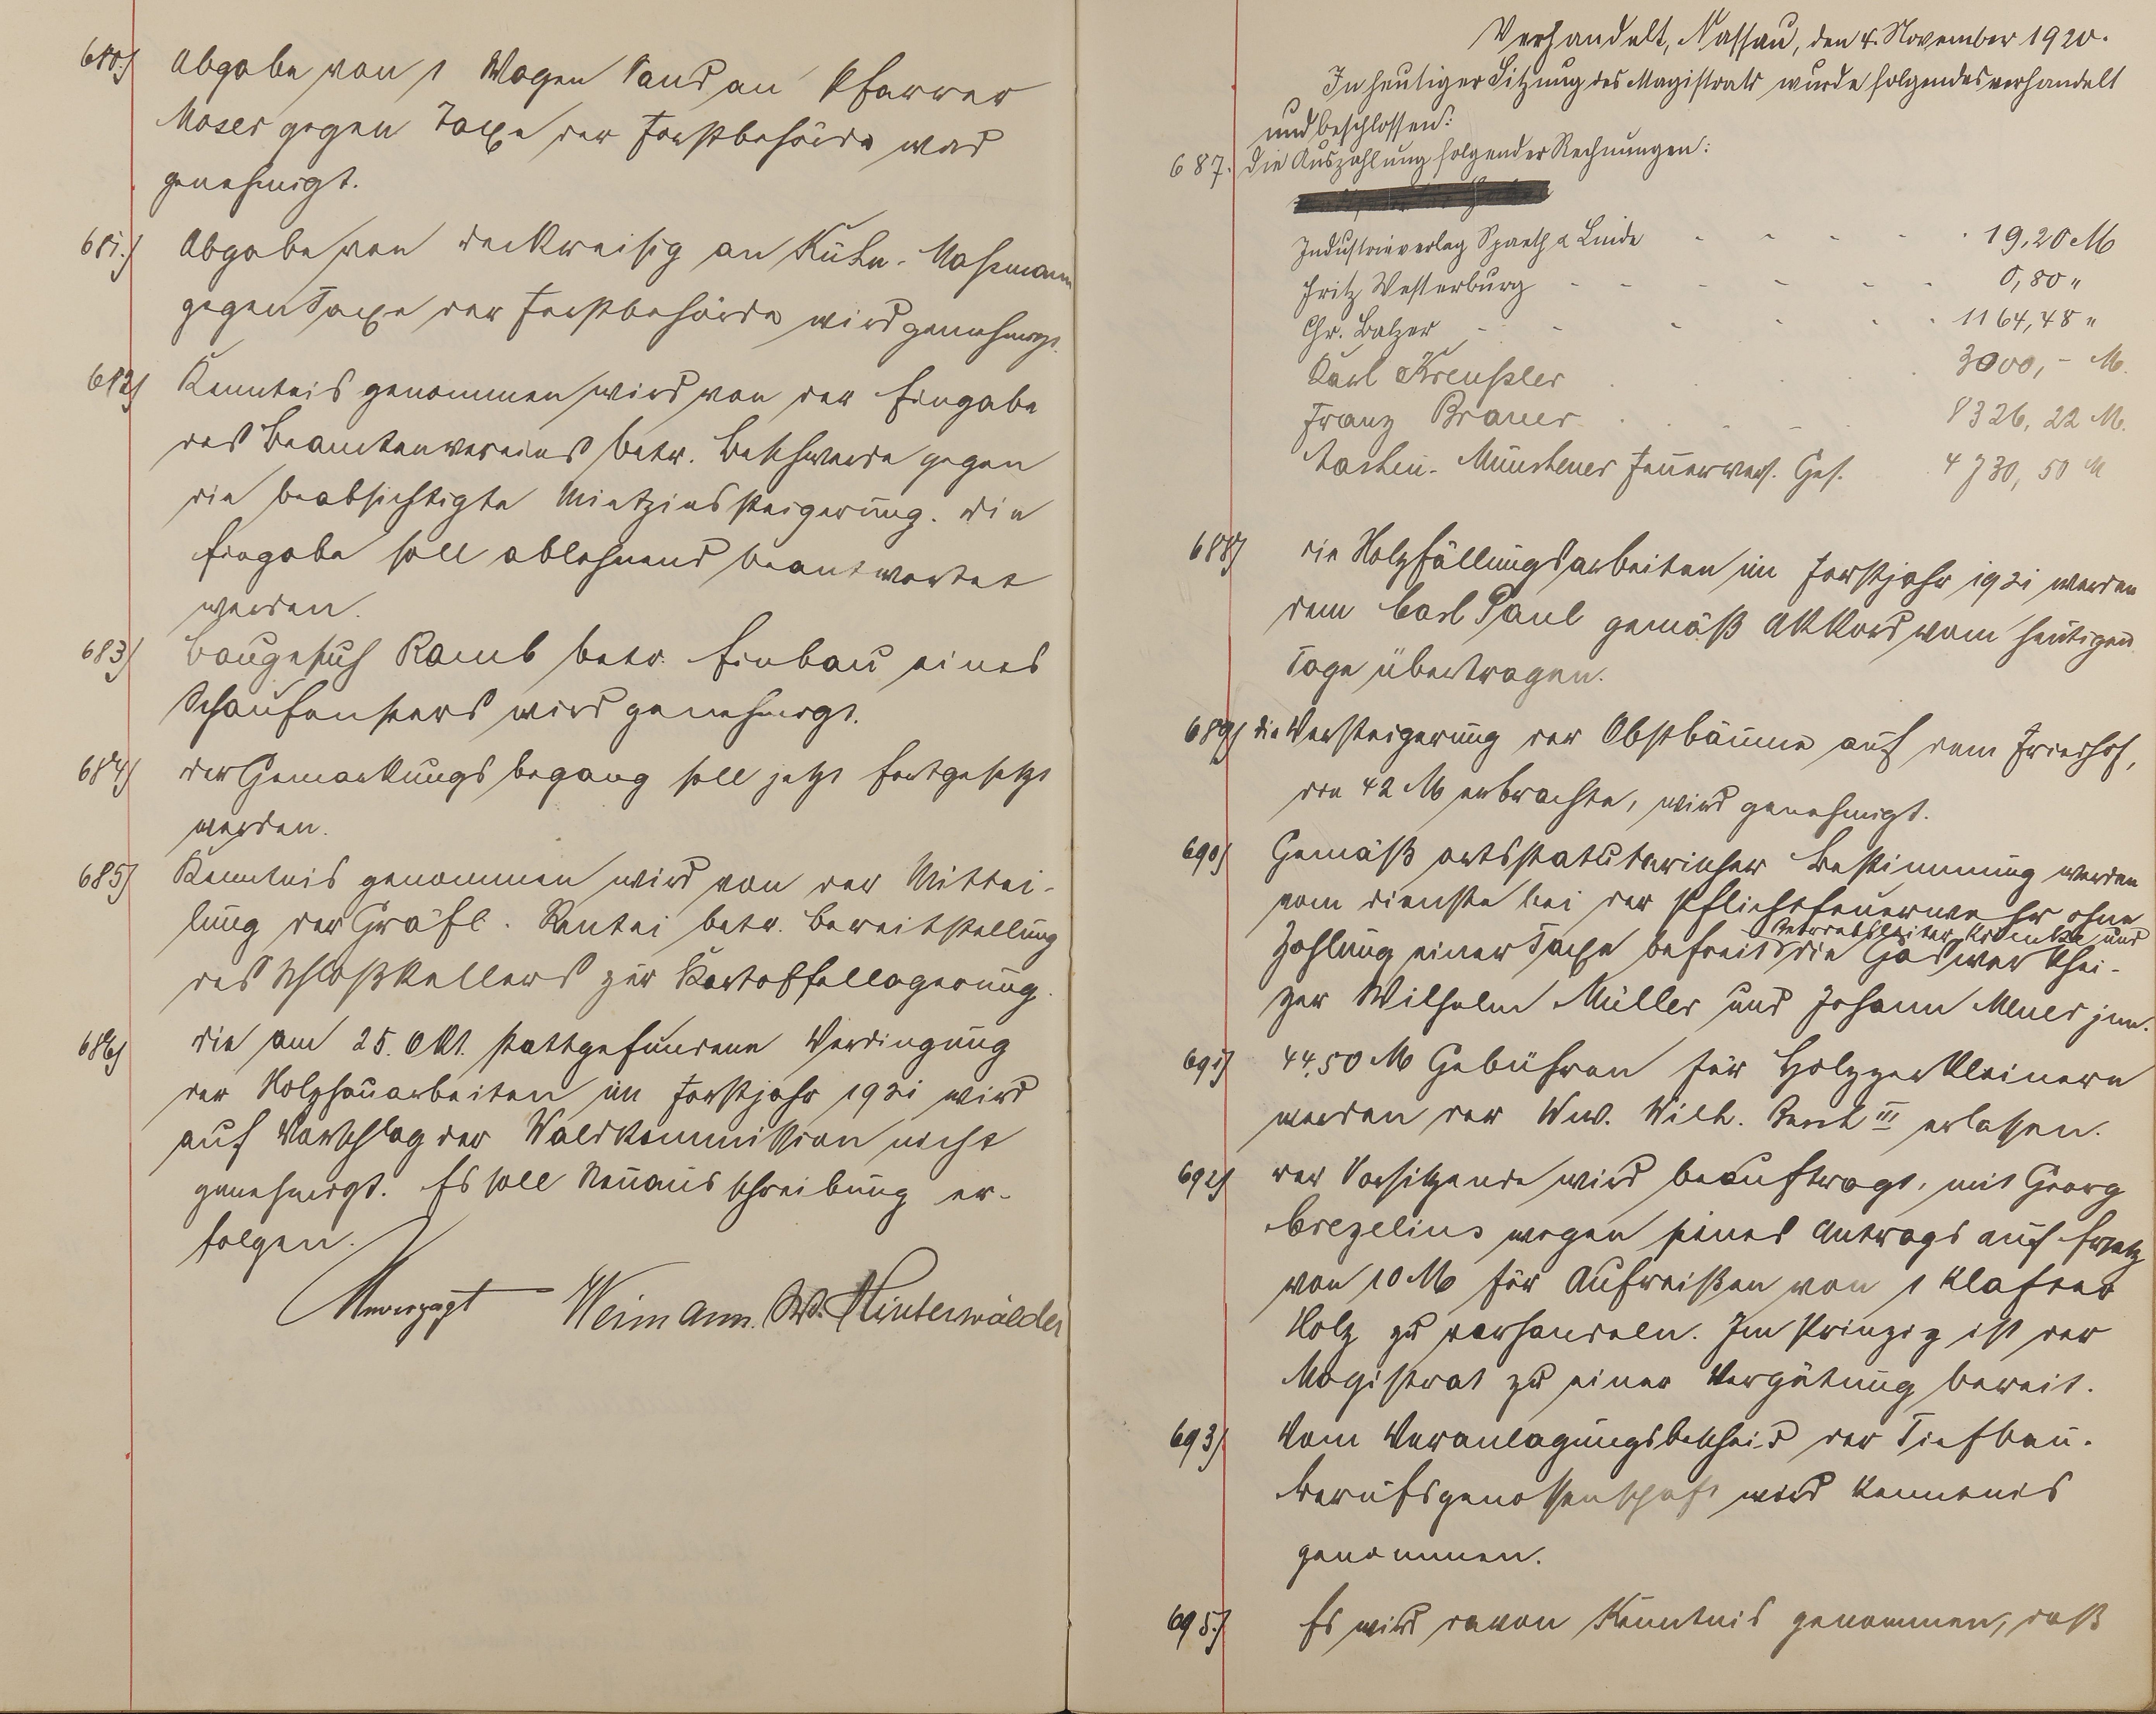 680.) Abgabe von 1 Wagen Sand an Pfarrer
Moser gegen Taxe der Forstbehörde wird
genehmigt.
681.) Abgabe von Deckreisig an Kuhn-Maßmann
gegen Taxe der Forstbehörde wird genehmigt.
682) Kenntnis genommen wird von der Eingabe
des Beamtenvereins betr. Beschwerde gegen
die beabsichtigte Mietzinssteigerung. Die
Eingabe soll ablehnend beantwortet
werden.
683) Baugesuch Raub betr. Einbau eines
Schaufensters wird genehmigt.
684) Der Gemarkungsbegang soll jetzt fortgesetzt
werden.
685) Kenntnis genommen wird von der Mittei-
lung der Gräfl. Rentei betr. Bereitstellung
des Schloßkellers zur Kartoffellagerung.
686) Die am 25. Okt. stattgefundene Verdingung
der Holzhauarbeiten im Forstjahr 1921 wird
auf Vorschlag der Waldkommission nicht
genehmigt. Es soll Neuausschreibung er-
folgen.
Unverzagt Weimann. W. Hinterwälder
Verhandelt, Nassau, den 4. November 1920.
In heutiger Sitzung des Magistrats wurde folgendes verhandelt
und beschlossen:
687. Die Auszahlung folgender Rechnungen:
Industrieverlag Spaeth & Linde - - - - 19,20 M
Fritz Westerburg - - - - - - 0,80 "
Chr. Balzer - - - - - - 1164,48 "
Karl Kreußler . . . . 3000,- M.
Franz Brauer . . . . 8326,22 M.
Aachen-Münchener Feuervers. Ges. 4730,50 M
688) Die Holzfällungsarbeiten im Forstjahr 1921 werden
dem Carl Paul gemäß Akkord vom heutigen
Tage übertragen.
689) Die Versteigerung der Obstbäume auf dem
die 42 M erbrachte, wird genehmigt.
690) Gemäß ortsstatutarischer Bestimmung werden
vom Dienste bei der Pflichtfeuerwehr ohne
Betriebsleiter und
Zahlung einer Taxe befreit die Gaswerkhei-
zer Wilhelm Müller und Johann jun.
691) 44,50 M Gebühren für Holzzerkleinern
werden der Ww. Wilh. III erlassen.
692) Der Vorsitzende wird beauftragt, mit Georg
Crezelius wegen seines Antrags auf Ersatz
von 10 M für Aufreißen von 1 Klafter
Holz zu verhandeln. Im Prinzip ist der
Magistrat zu einer Vergütung bereit.
693) Vom Veranlagungsbescheid der Tiefbau-
berufsgenossenschaft wird Kenntnis
genommen.
695.) Es wird davon Kenntnis genommen, daß